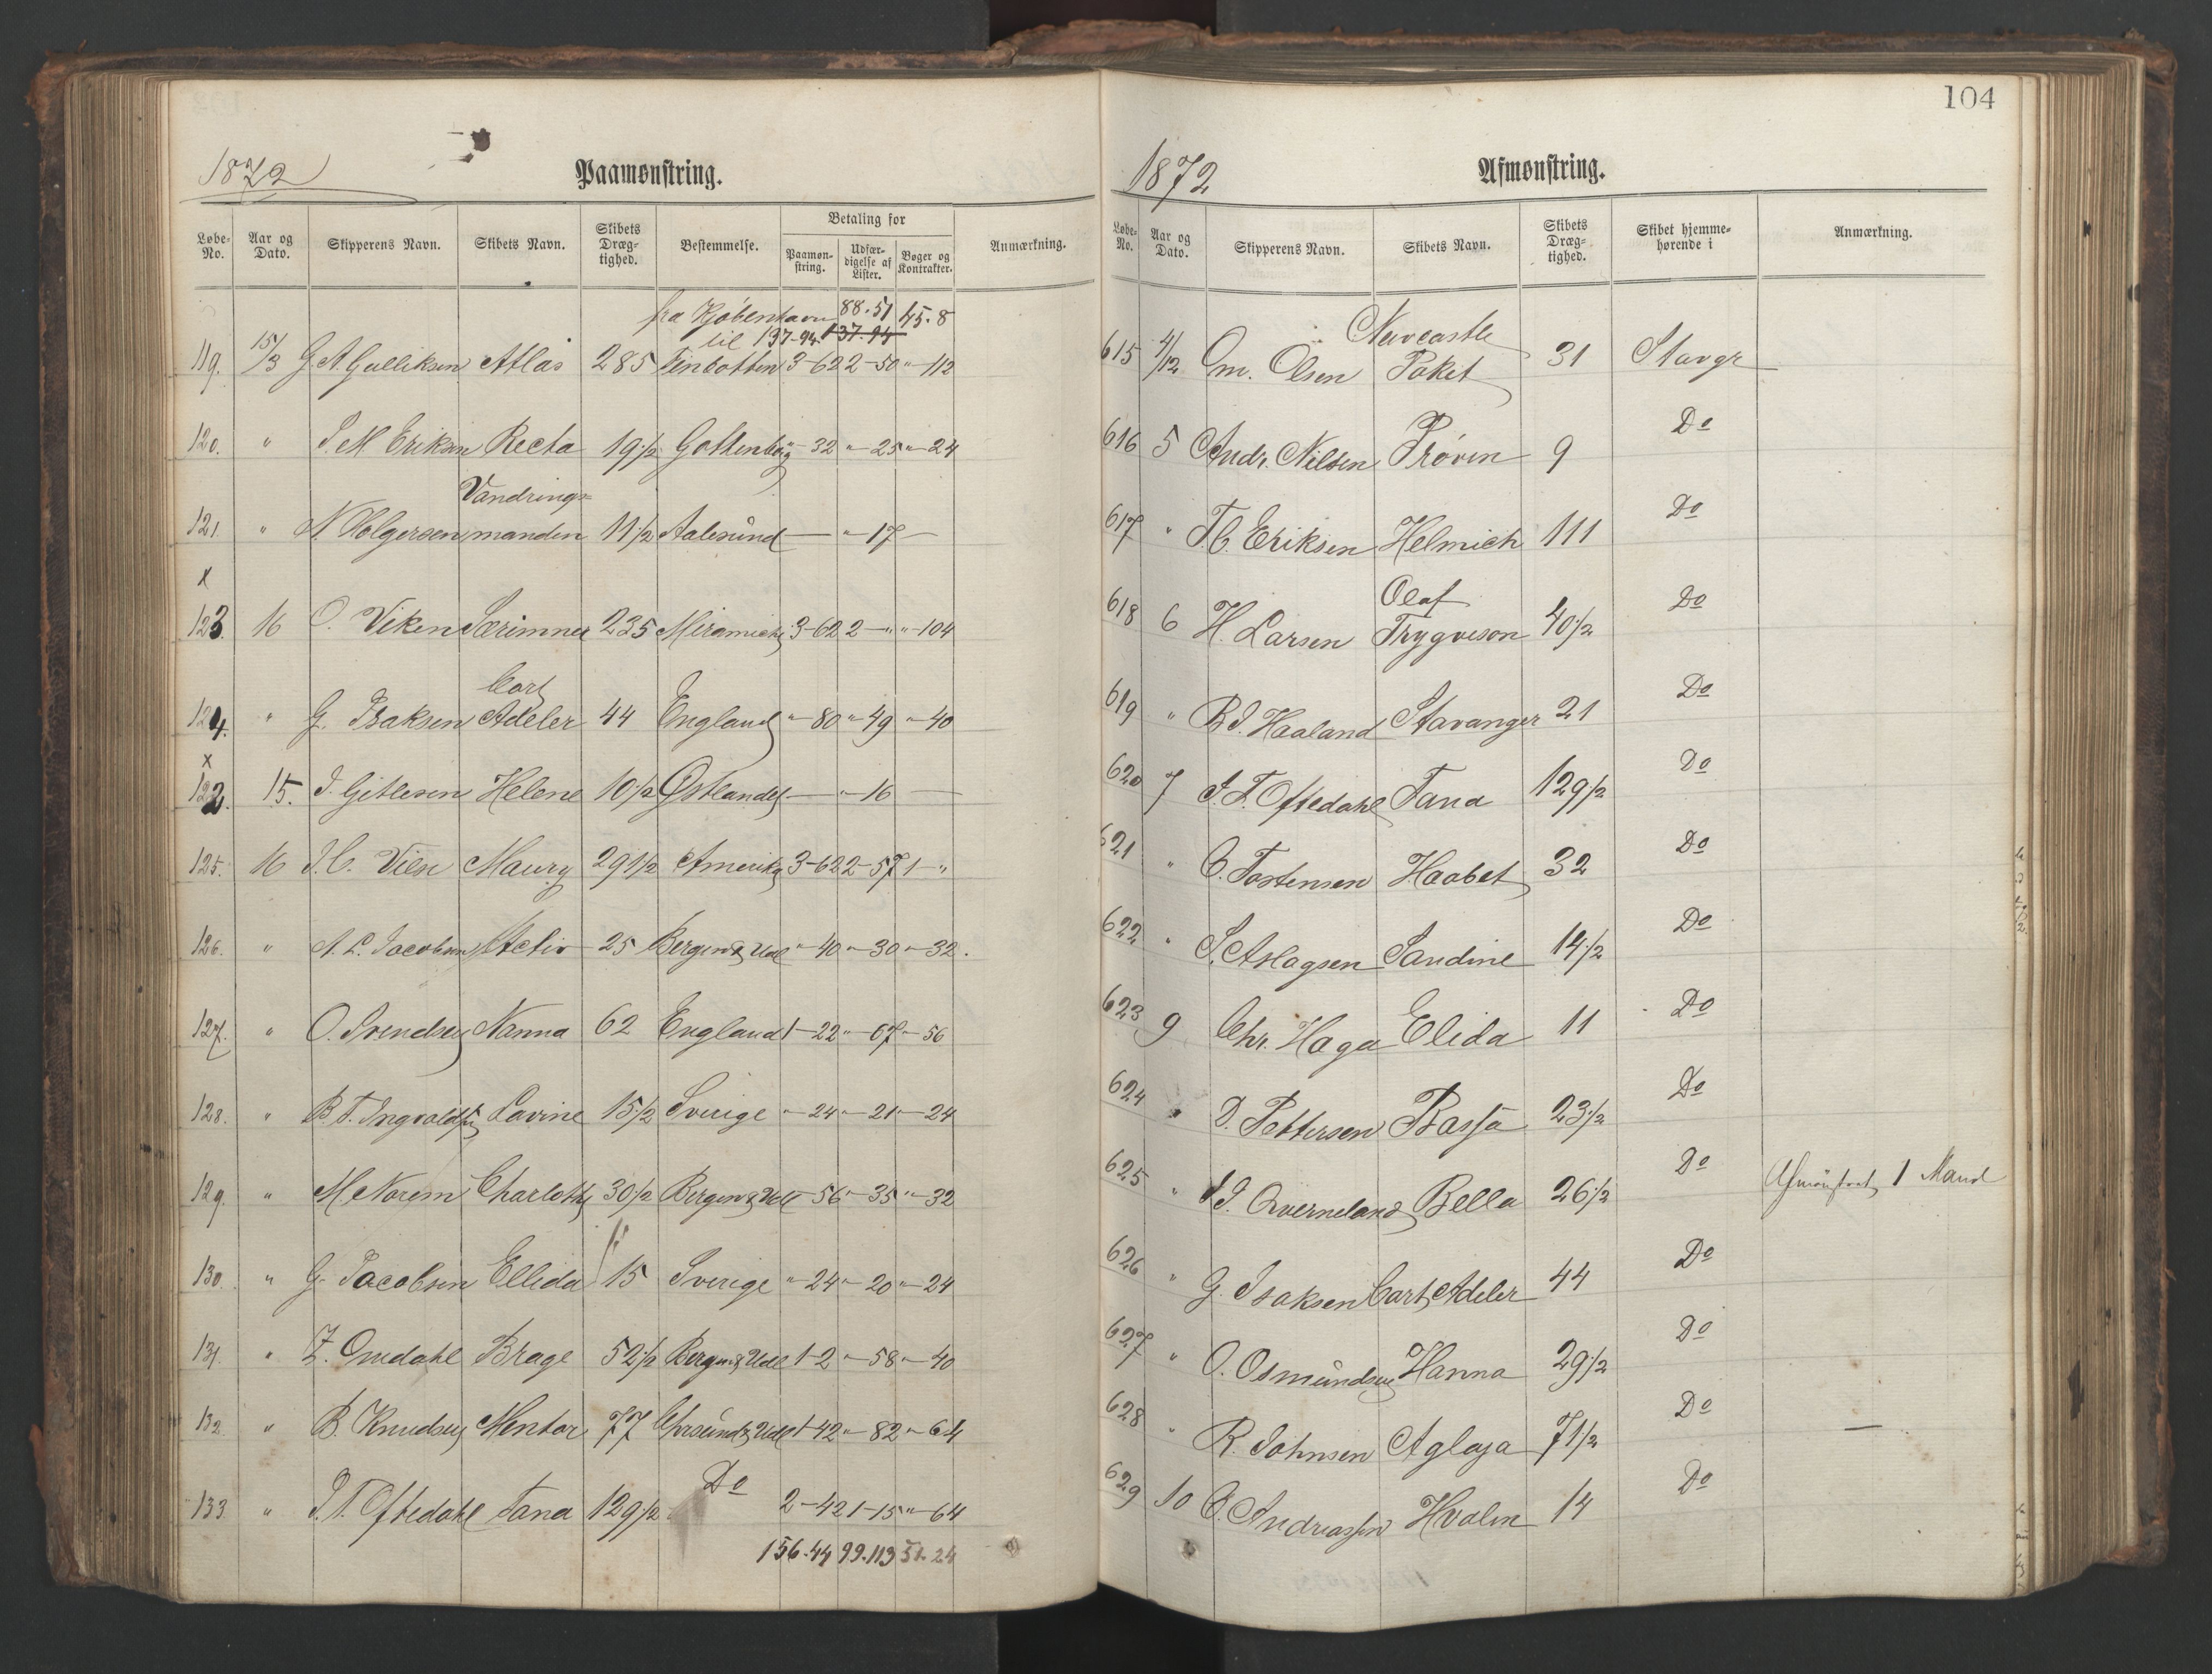 1872
Paamønstring.
Løbe-No. Aar og Dato. Skipperens Navn. Skibets Navn. Skibets Dræg-tighed. Bestemmelse. Betaling for Paamøn-string. Udfær-digelse af Lister. Bøger og Kontrakter. Anmærkning.
fra Kjøbenhavn 88.51 45.8
til 137-94 137.94
119. 15/3 G. A. Gulliksen Atlas 285 Finbotten 3-62 2-50 "-112
120. " J. M Eriksen Recta 19 1/2 Gottenborg "-32 "-25 "-24
Vandrings=
121. " N. Holgersen manden 11 1/2 Aalesund — "-17 —
x
123. 16 O. Viken Særimner 235 Miramichi 3-62 2-" "-104
Cort
124. " G. Isaksen Adeler 44 England "-80 "-49 "-40
x
122. 15. J. Gitlesen Helene 10 1/2 Østlandet — "-16 —
125. 16 J. C. Viese Maury 291 1/2 Amerika 3-62 2-57 1-"
126. " A. L. Jacobsen Activ 25 Bergen & Udl "-40 "-30 "-32.
127. " O. Svendsen Nanna 62 England 1-22 "-67 "-56
128. " B. T. Ingvaldsen Lavine 15 1/2 Sverige "-24 "-21 "-24
129. " M Norem Charlotte 30 1/2 Bergen & Udl "-56 "-35 "-32
130. " G. Jacobsen Ellida 15 Sverige "-24 "-20 "-24
131. " Z. Omdahl Brage 52 1/2 Bergen & Udl 1-2 "-58 "-40
132. " B. Knudsen Mentor 77 Chrsund & Udl 1-42 "-82 "-64
133 " J. T. Oftedahl Tana 129 1/2 Do 2-42 1-15 "-64
156.44 99.113 51.24
104
1872
Afmønstring.
Løbe-No. Aar og Dato. Skipperens Navn. Skibets Navn. Skibets Dræg-tighed. Skibet hjemme-hørende i Anmærkning.
Newcastle
615 4/12 Om. Olsen Paket 31 Stavgr
616 5 Andr. Nilsen Prøven 9 Do
617 " T. C. Eriksen Helmich 111 Do
Olaf
618 6 H. Larsen Trygveson 40 1/2 Do
619 " R. J. Haaland Stavanger 21 Do
620 7 J. T. Oftedahl Tana 129 1/2 Do
621 " C. Tostensen Haabet 32 Do
622 " S. Aslagsen Sandine 14 1/2 Do
623 9 Chr. Haga Elida 11 Do
624 " D. Pettersen Rassa 23 1/2 Do
625 " J. Qverneland Bella 26 1/2 Do Afmønstret 1 Mand
626 " G. Isaksen Cort Adeler 44 Do
627 " O. Osmundsen Hanna 29 1/2 Do
628 " R. Johnsen Aglaja 71 1/2 Do —
629 10 C. Andreassen Hvalen 14 Do